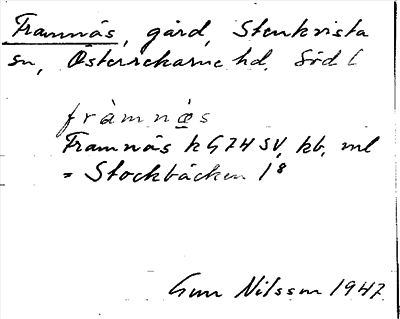 Framnäs, gård, Stenkvista
sn, Österrekarne hd, Södl
fràmnæs
Framnäs k G7H SV, kb, ml
= Stockbäcken 1⁸
Gun Nilsson 1947